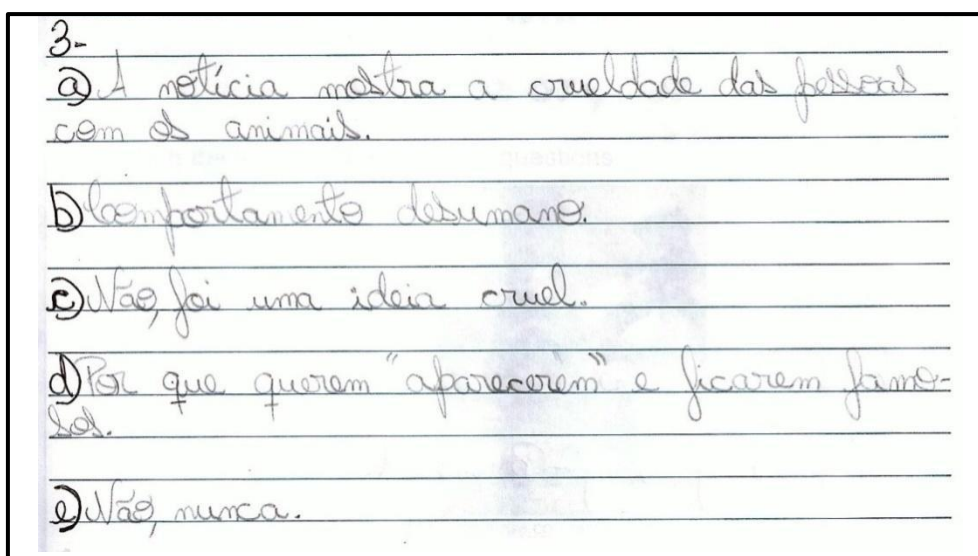 3-
a) A notícia mostra a crueldade das pessoas
com os animais.
b) Comportamento desumano.
c) Não, foi uma ideia cruel.
d) Por que querem "aparecerem" e ficarem famo-
sos.
e) Não, nunca.